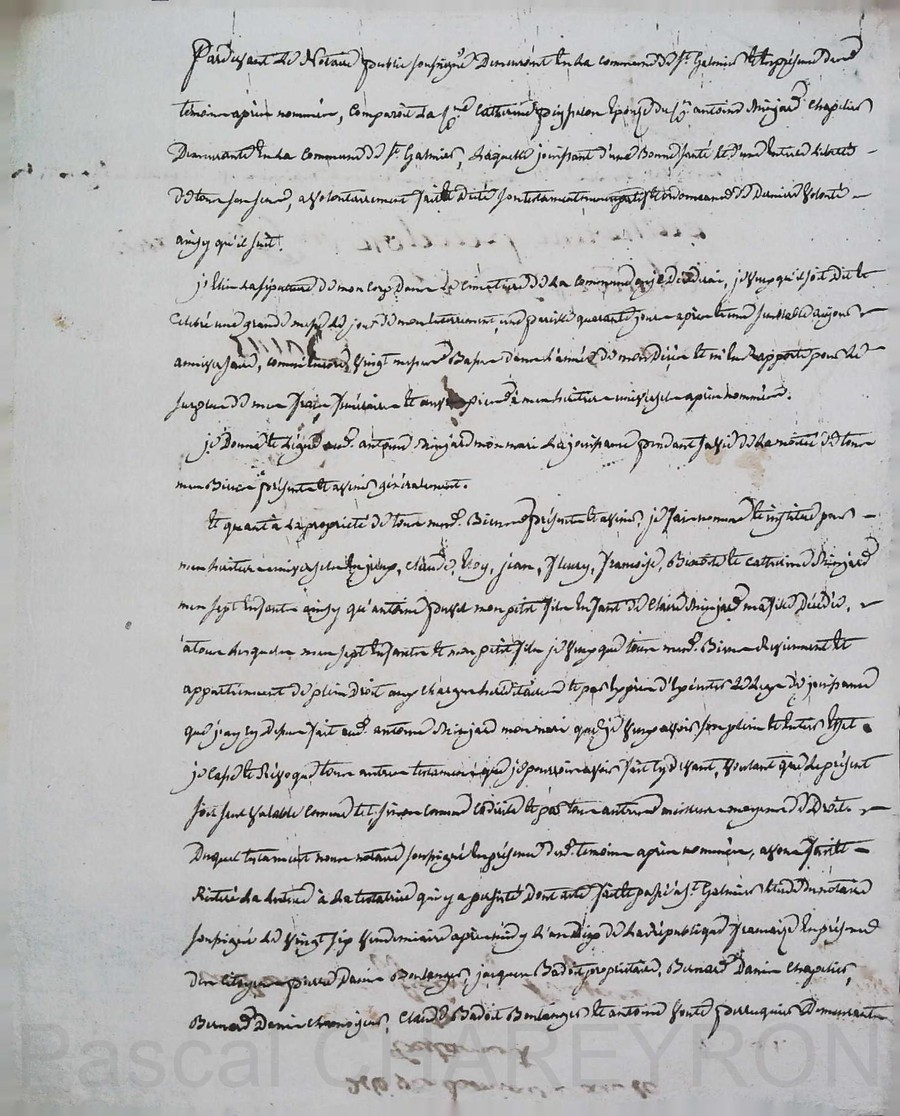 Pardevant Le Notaire public soussigné Demeurant En La commune de St. Galmier Et En présence des
témoins après nommés, Comparoit La Ce. Catherine peysselon Epouse du Cn. antoine chapelier
Demeurante En La Commune de St. Galmier, Laquelle jouissant d'une Bonne santé Et d'une Entière Liberté
de tous ses sens, a volontairement fait Et Dicté son testament nuncupatif Et ordonnance de Derniere volonté
ainsy qu'il suit.
j'Elis La sépulture de mon Corps Dans Le Cimetière de La Commune ou je Décéderai, je veux qu'il soit Dit Et
Célébré une grande messe Le jour de mon Enterrement une pareille quarante jours après Et une semblable au jour
anniversaire, comme Encore vingt messes Basses Dans L'année de mon Décès Et m'En Rapporte pour Le
surplus de mes frais funéraires Et œuvres pies à mes héritiers universels après nommés.
je Donne Et Lègue aud. antoine mon mari La jouissance pendant sa vie de La moitié de tous
mes Biens présents Et avenir généralement.
Et quant à La propriété de tous mesd. Biens présents Et avenir, je fais nomme Et institue pour
mes héritiers universels Claude, Eloy, jean, fleury, françoise, Benoite Et Catherine
mes sept Enfants ainsy qu'antoine mon petit fils Enfant de Claire ma fille Décédée,
à tous Lesquels mes sept Enfants Et mon petit fils je veux que tous mesd. Biens Reviennent Et
appartiennent de plein Droit aux charges héréditaires Et par Exprès d'Exécuter Le Legs de jouissance
que j'ay cy Dessus fait aud. antoine mon mari que je veux avoir son plein Et Entier Effet
je Casse Et Révoque tous autres testaments que je pourrois avoir fait cy devant, voulant que Le présent
soit seul valable Comme tel sinon Comme Codicille Et par tous autres meilleurs moyens de Droit.
Duquel testament nous notaire soussigné En présence desd. témoins après nommés, avons fait Et
Réitéré La Lecture à La testatrice qui y a persisté Dont acte fait Et passé à St. Galmier Etude du notaire
soussigné Le vingt sept vendemiaire après midy L'an Dix de La République française En présence
des Citoyens pierre Danis Boulanger, jacques Badoit propriétaire, Bernard Danis Chapelier,
Bernard Danis Claude Badoit Boulanger Et antoine perruquier Demeurants
Pascal CHAREYRON